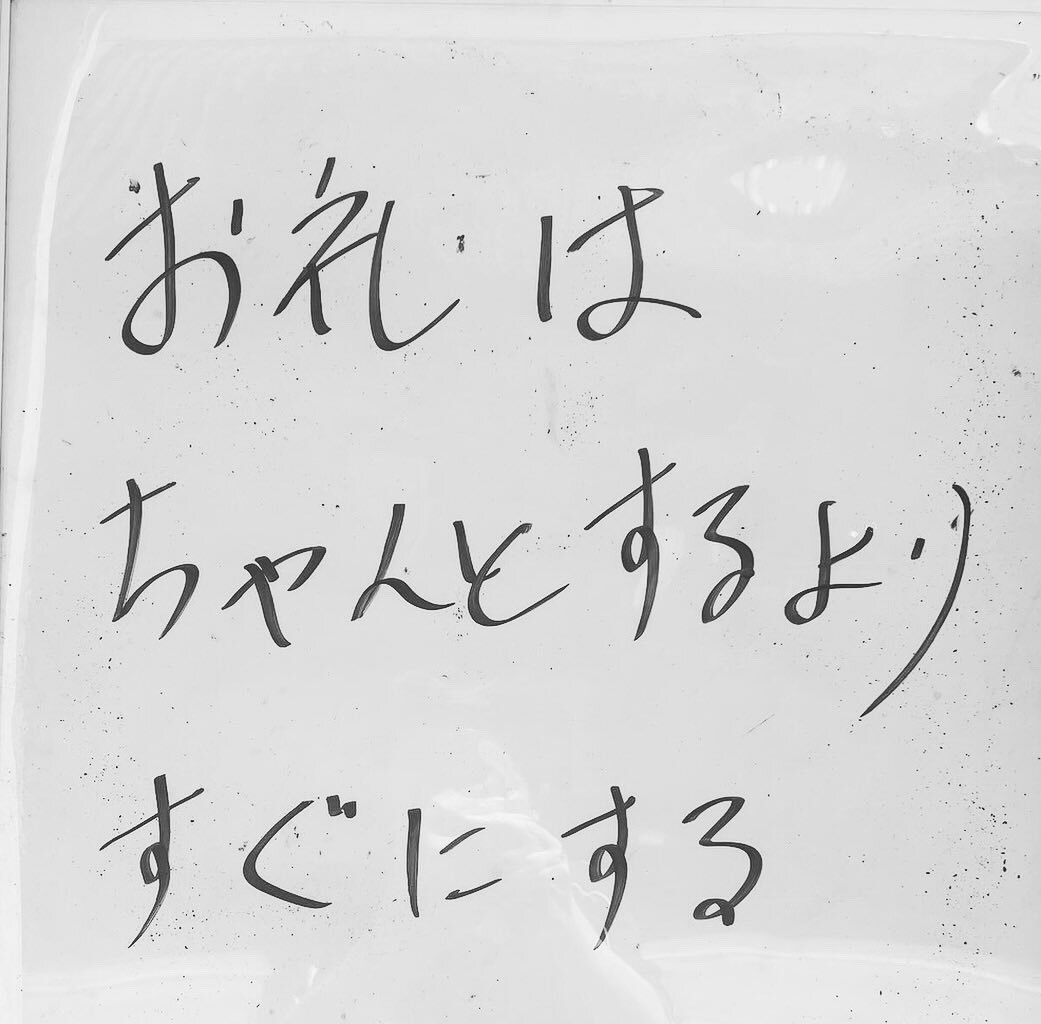 お礼は
ちゃんとするより
すぐにする